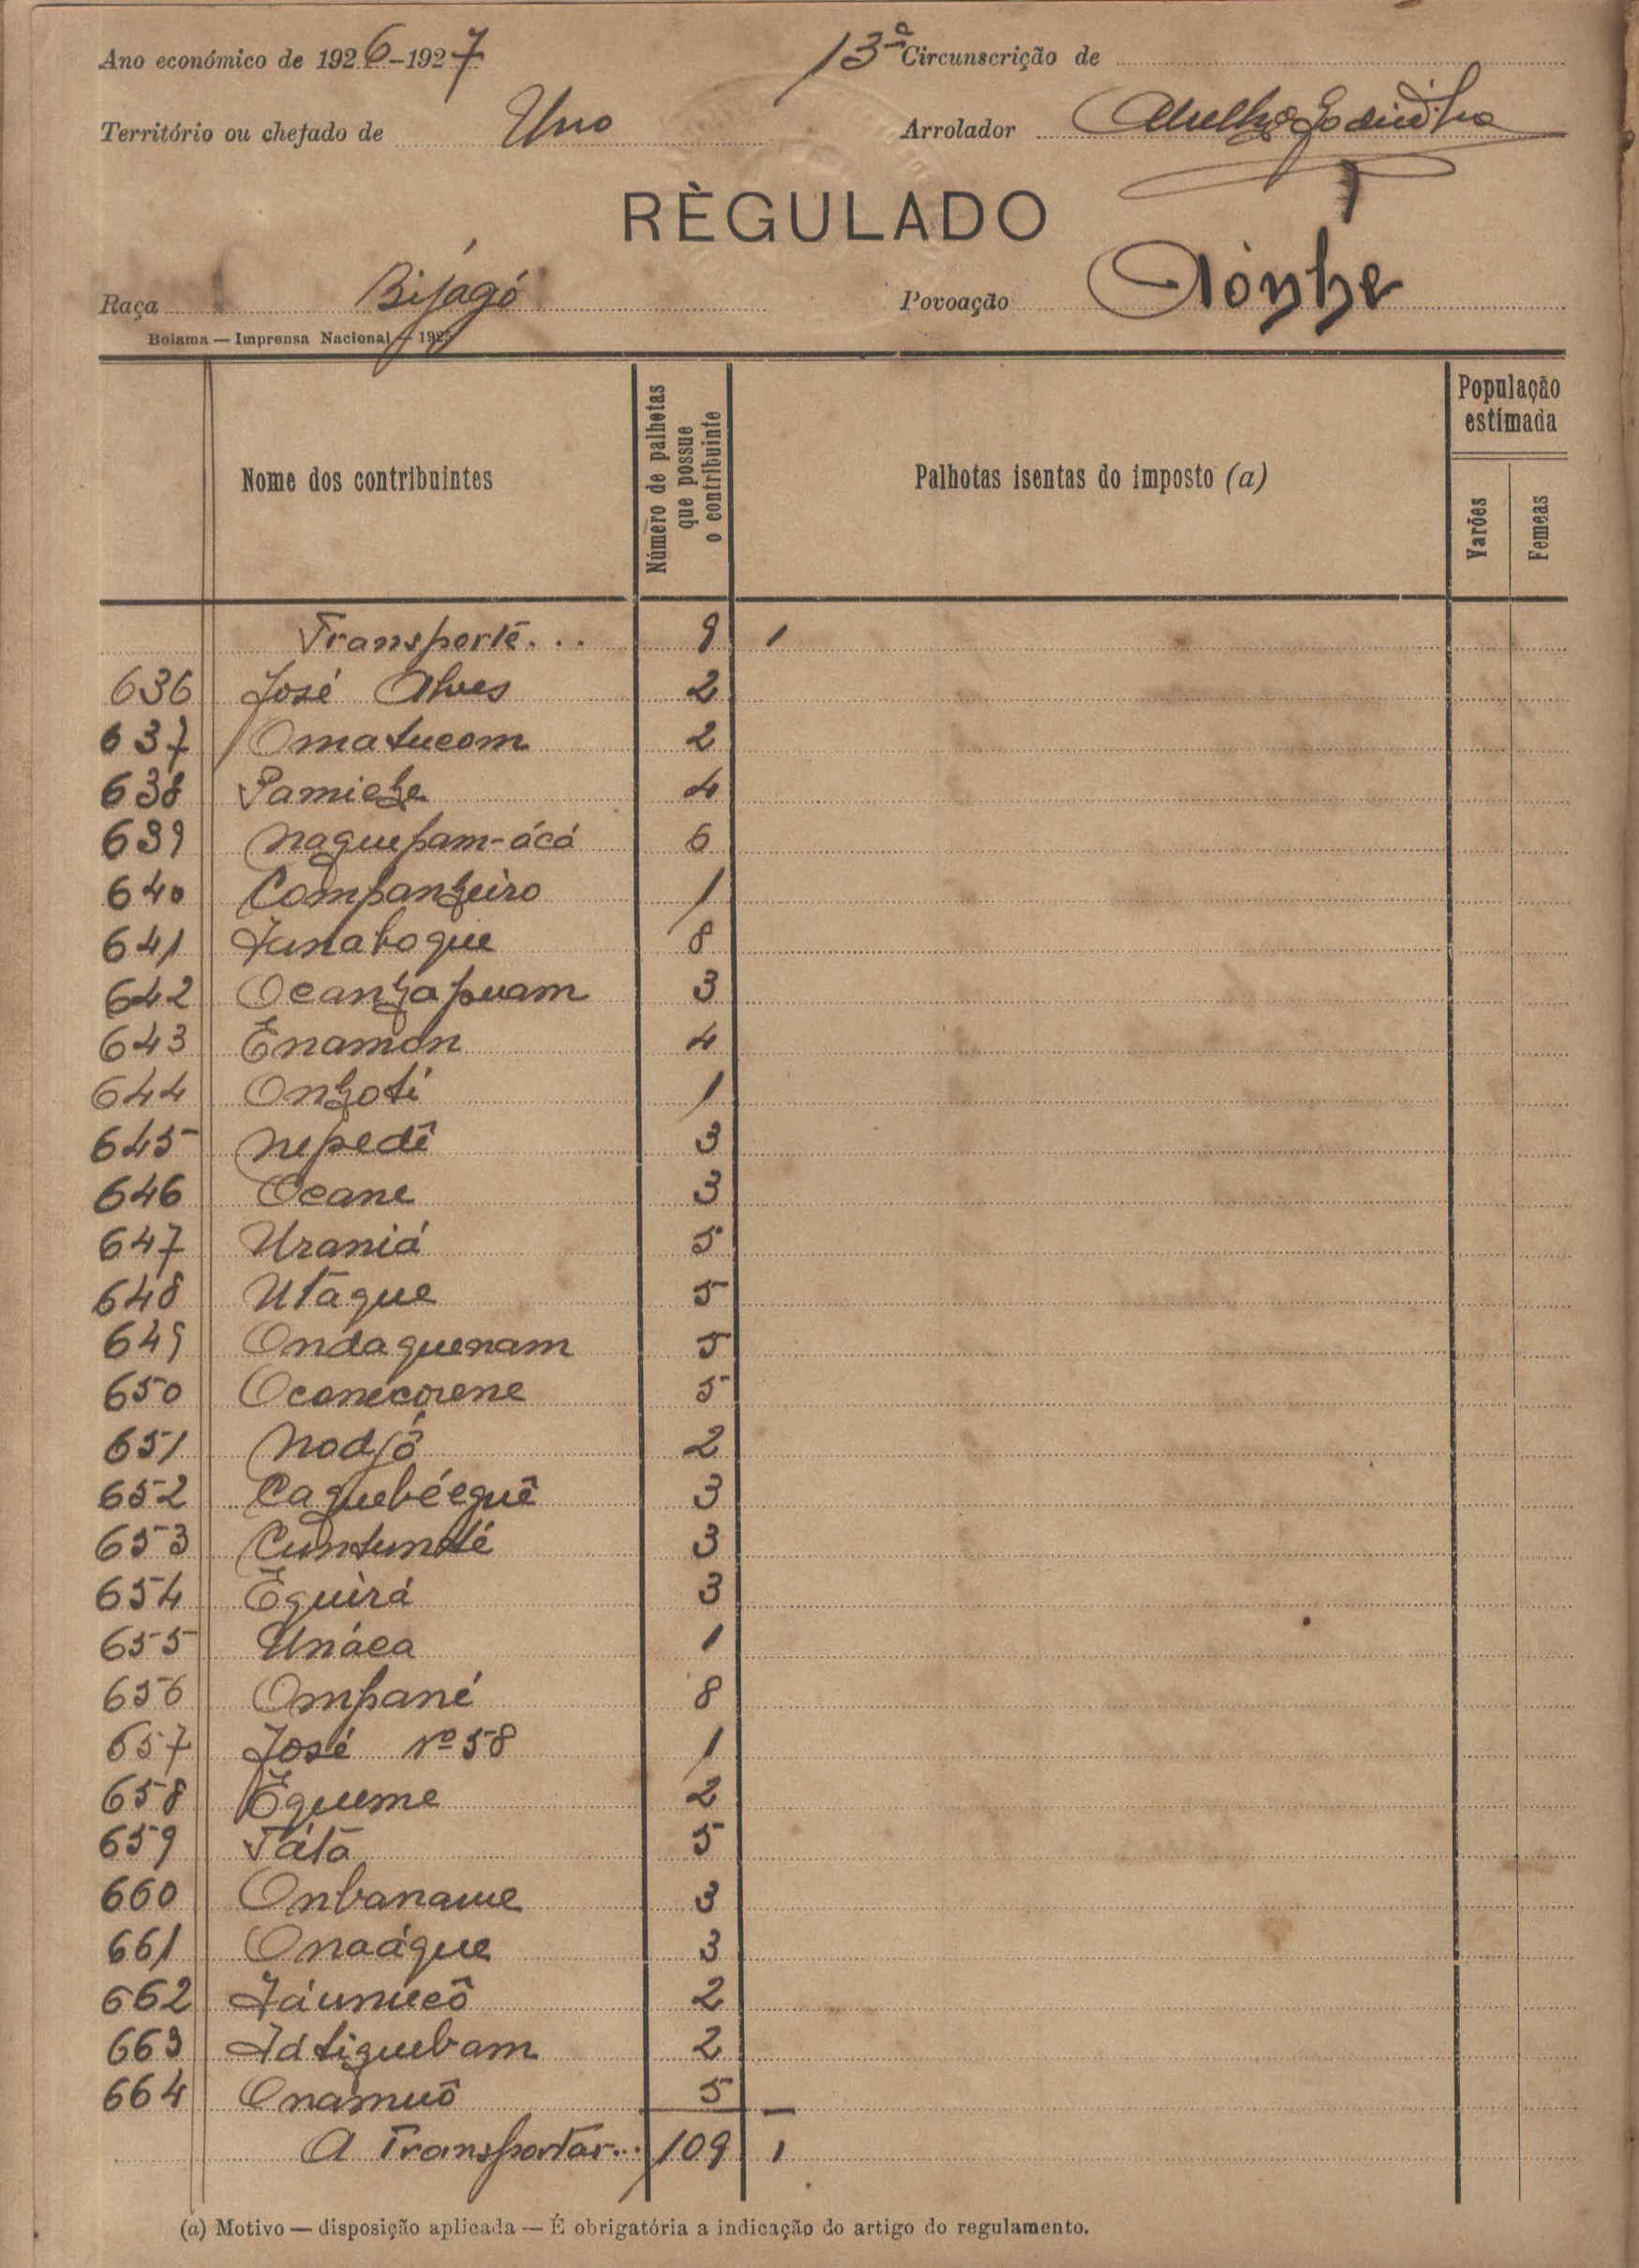 Ano económico de 1926-1927 13ª Circunscrição de
Território ou chefado de Uno Arrolador
RÈGULADO
Raça Bijagó Povoação
Bolama — Imprensa Nacional — 1925
Nome dos contribuintes
Número de palhotas que possue o contribuinte
Palhotas isentas do imposto (a)
População estimada
Varões
Femeas
Transporte... 9 1
636 José Alves 2
637 Omatucom 2
638 Pamiche 4
639 Naquepam-ócó 6
640 Companheiro 1
641 Junaboque 8
642 Ocanhapuam 3
643 Enamon 4
644 Onhoti 1
645 Nepedê 3
646 Ocane 3
647 Uraniá 5
648 Utaque 5
649 Ondaquenam 5
650 Oconecorene 5
651 Nodjô 2
652 Caquebécquê 3
653 3
654 Equirá 3
655 Unáca 1
656 Ompané 8
657 José nº 58 1
658 Equeme 2
659 Táta 5
660 Onbaname 3
661 Onaáque 3
662 Jáunucô 2
663 Játiquebam 2
664 Onamuô 5
A Transportar... 109 1
(a) Motivo — disposição aplicada — É obrigatória a indicação do artigo do regulamento.